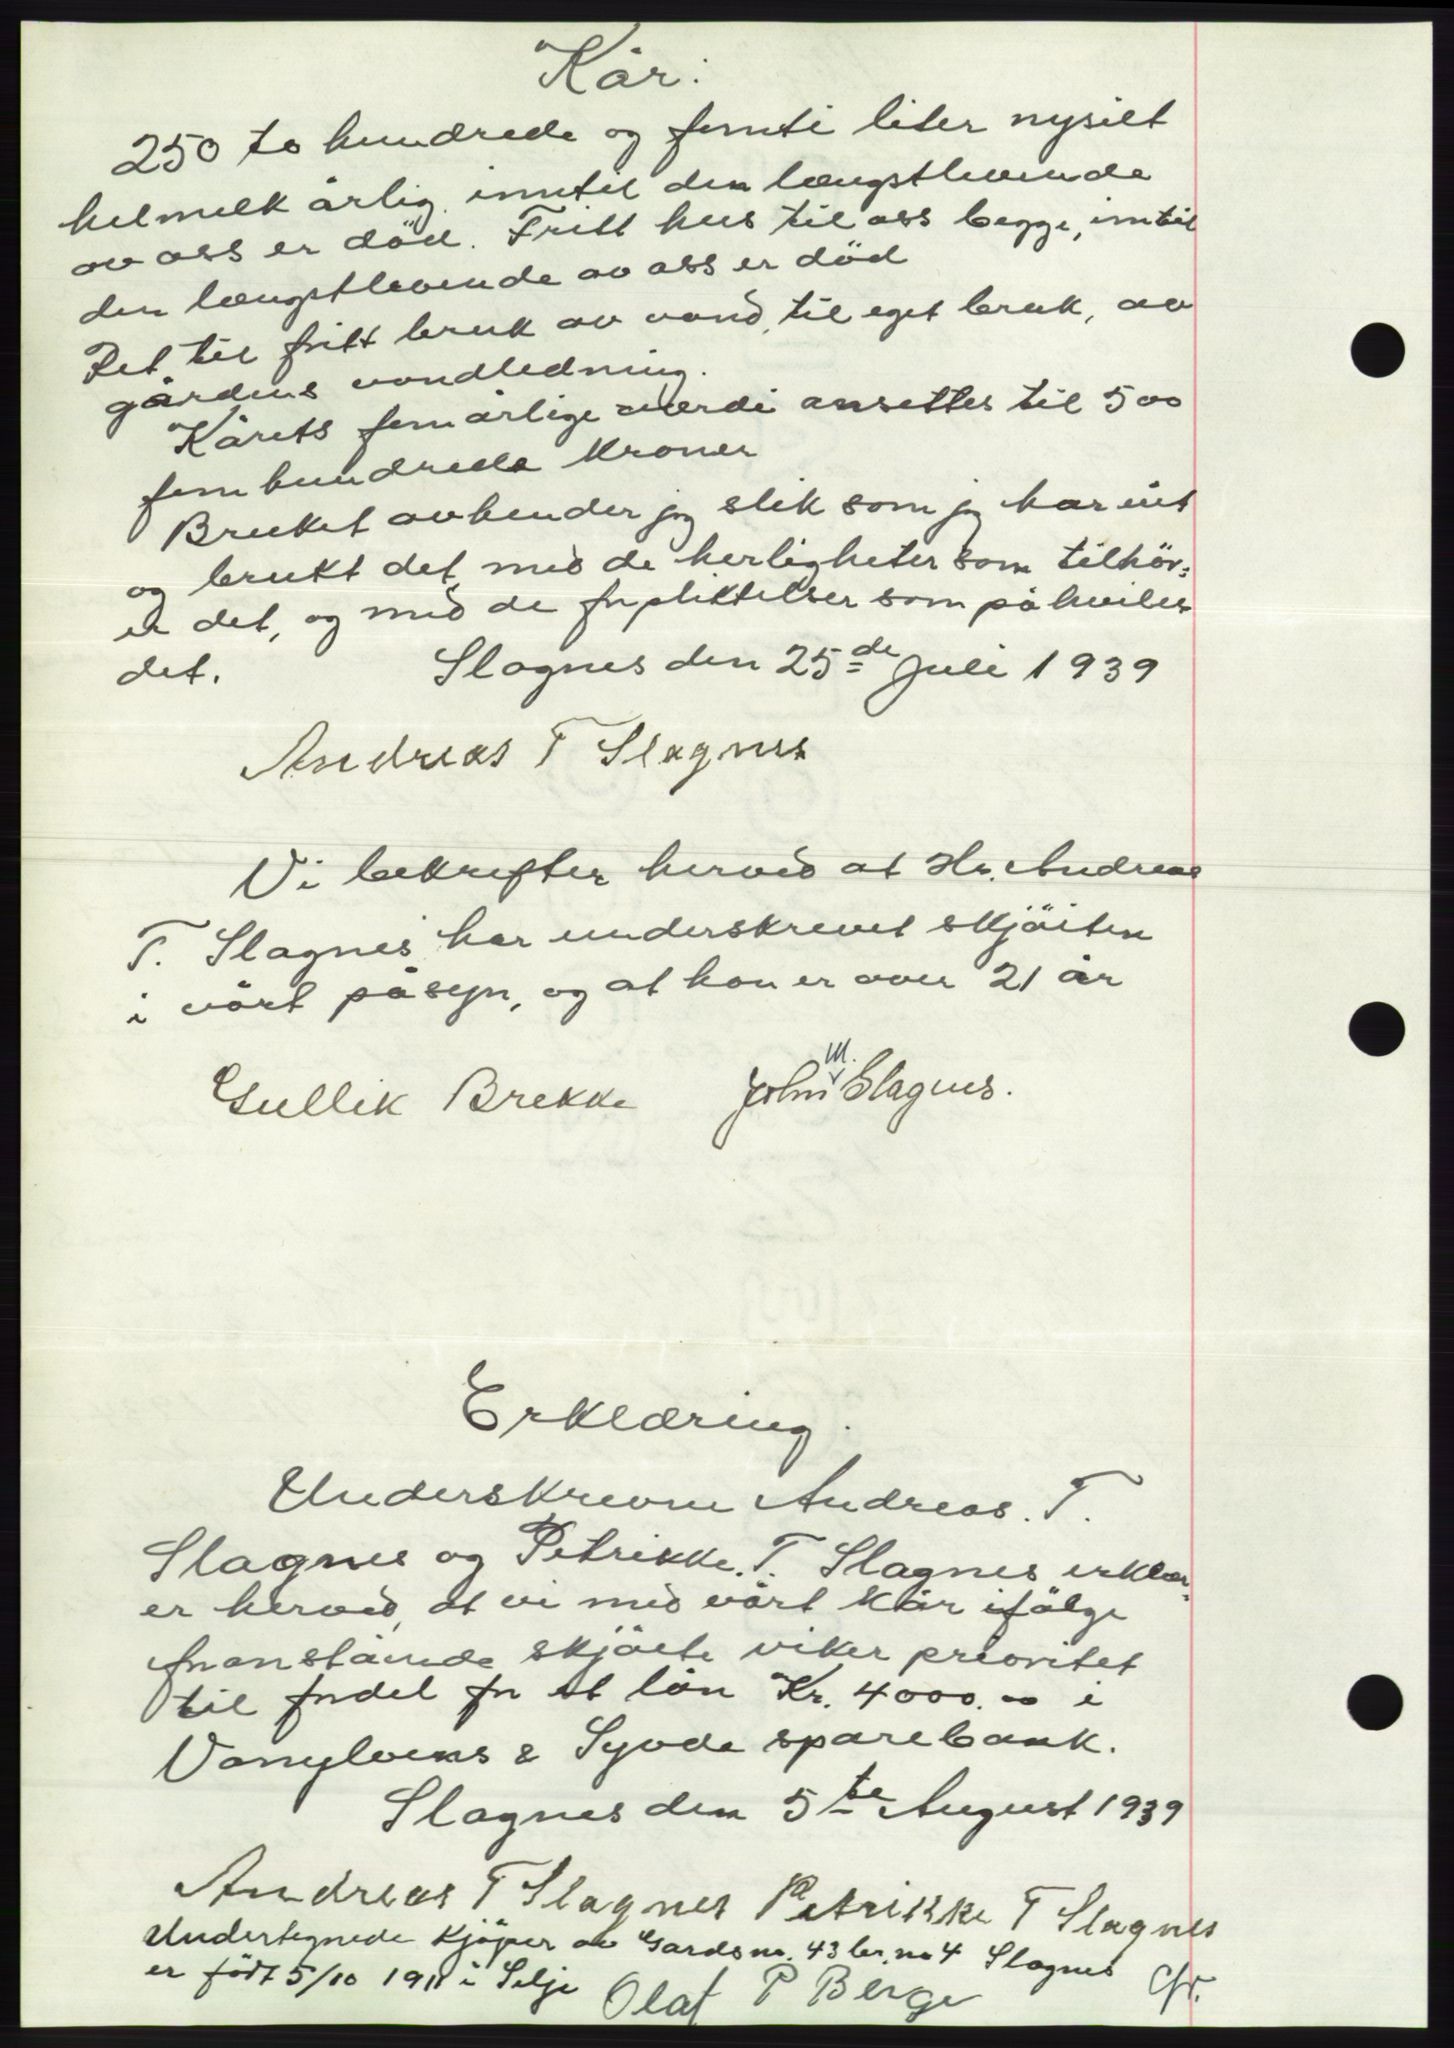 Kår:
250 to hundrede og femti liter nysilt
helmelk årlig inntil den længstlevende
av oss er död. Fritt hus til oss begge, inntil
den længstlevende av oss er död
Ret til fritt bruk av vand, til eget bruk, av
gårdens vandledning.
Kårets femårlige værdi ansettes til 500
femhundrede kroner
Bruket avhender jeg slik som jeg har eiet
og brukt det, med de herligheter som tilhör=
er det, og med de forpliktelser som påhviler
det. Slagnes den 25de Juli 1939
Andreas T Slagnes
Vi bekrefter herved at Hr. Andreas
T. Slagnes har underskrevet skjöiten
i vårt påsyn, og at han er over 21 år
Gullik Brekke John M. Slagnes.
Erklæring.
Underskrevne Andreas. T.
Slagnes og Petrikke. T. Slagnes erklær=
er herved, at vi med vårt kår ifölge
foranstående skjöite viker prioritet
til fordel for et lån Kr. 4000.00 i
Vanylvens & Syvde sparebank.
Slagnes den 5te August 1939
Andreas T Slagnes Petrikke T Slagnes
Undertegnede kjöper av Gardsnr. 43 br. no 4 Slagnes
er født 5/10 1911 i Selje Olaf P Berge